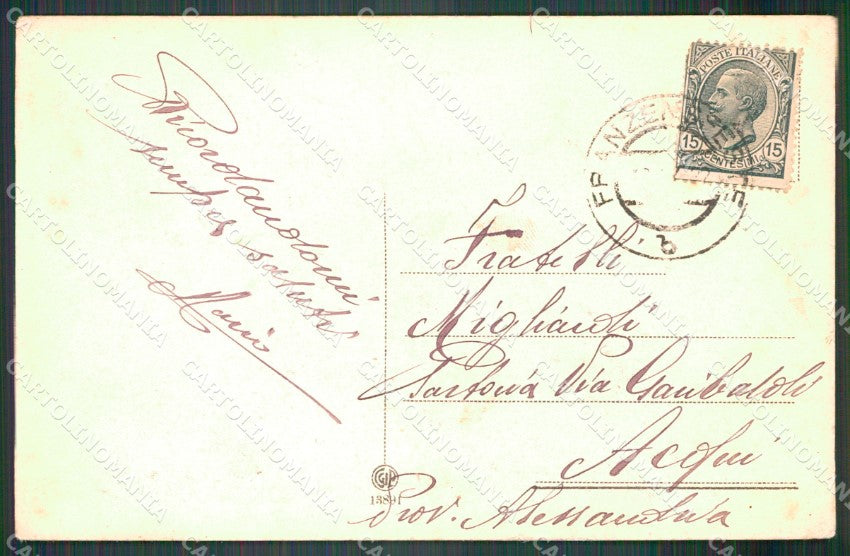 Ricordandomi
sempre saluti
Mario
POSTE ITALIANE
15 15
CENTESIMI
FRANZE
Fratelli
Migliardi
Via Garibaldi
Acqui
Prov. Alessandria
CGP
13891
CARTOLINOMANIA